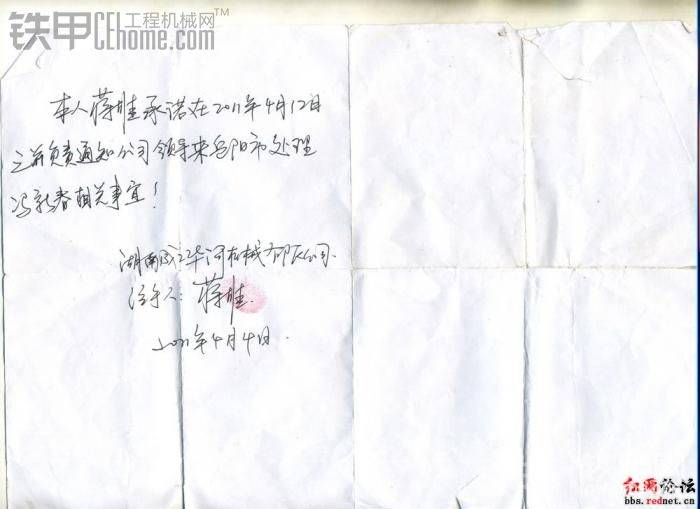 铁甲 工程机械网
CEhome.com
本人蒋雄承诺在2011年4月12日
之前负责通知公司领导来岳阳市处理
冯新春相关事宜！
湖南 华河机械有限公司.
经手人：蒋雄.
2011年4月4日.
红网论坛
bbs.rednet.cn